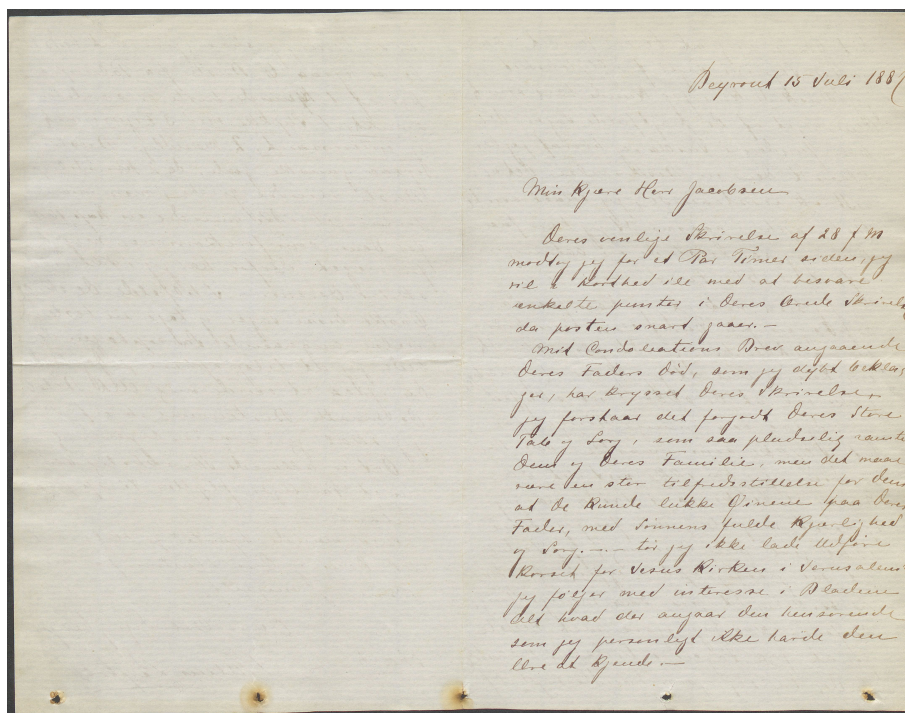 Beyrout 15 Juli 188
Min Kjære Herr Jacobsen
Deres venlige Skrivelse af 28 f M
modtog jeg for et Par Timer siden, jeg
vil i korthed ile med at besvare
enkelte punkter i Deres ærede Skrivelse
da posten snart gaaer. —
Mit Condoleations Brev angaaende
Deres Faders Død, som jeg dybt bekla-
ger, har krysset Deres Skrivelse,
jeg forstaar det forgodt Deres Store
Tab og Sorg, som saa pludselig ramte
Dem og Deres Familie, men det maa
være en stor tilfredsstillelse for dem
at De kunde lukke Øinene paa Deres
Fader, med Sønnens fulde Kjærlighed
og Sorg. — — tør jeg ikke lade Udføre
Korset for Jesus Kirken i Jerusalem
jeg følger med interesse i Bladene
alt hvad der angaar den hensovende
som jeg personligt ikke havde den
Ære at Kjende. —